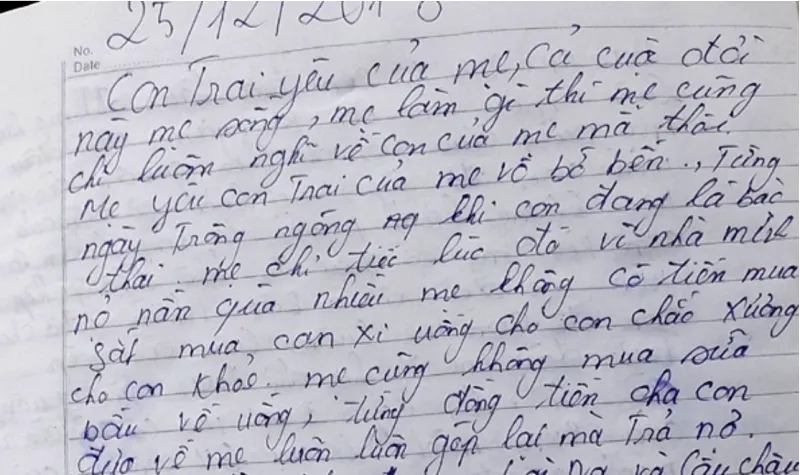 No.
Date
25/12/201
Con Trai yêu của mẹ, Cả cuả đời
này mẹ sống, mẹ làm gì thì mẹ cũng
chỉ luôn nghĩ về con của mẹ mà thôi.
Mẹ yêu con Trai của mẹ vô bờ bến., Từng
ngày Trông ngóng khi con đang là bào
thai mẹ chỉ tiếc lúc đó vì nhà mình
nợ nần quá nhiều mẹ không có tiền mua
sắt mua, can xi uống cho con chắc Xương
cho con khoẻ. mẹ cũng không mua sữa
bầu về uống, từng đồng tiền cha con
đưa về mẹ luôn luôn góp lại mà Trả nợ.